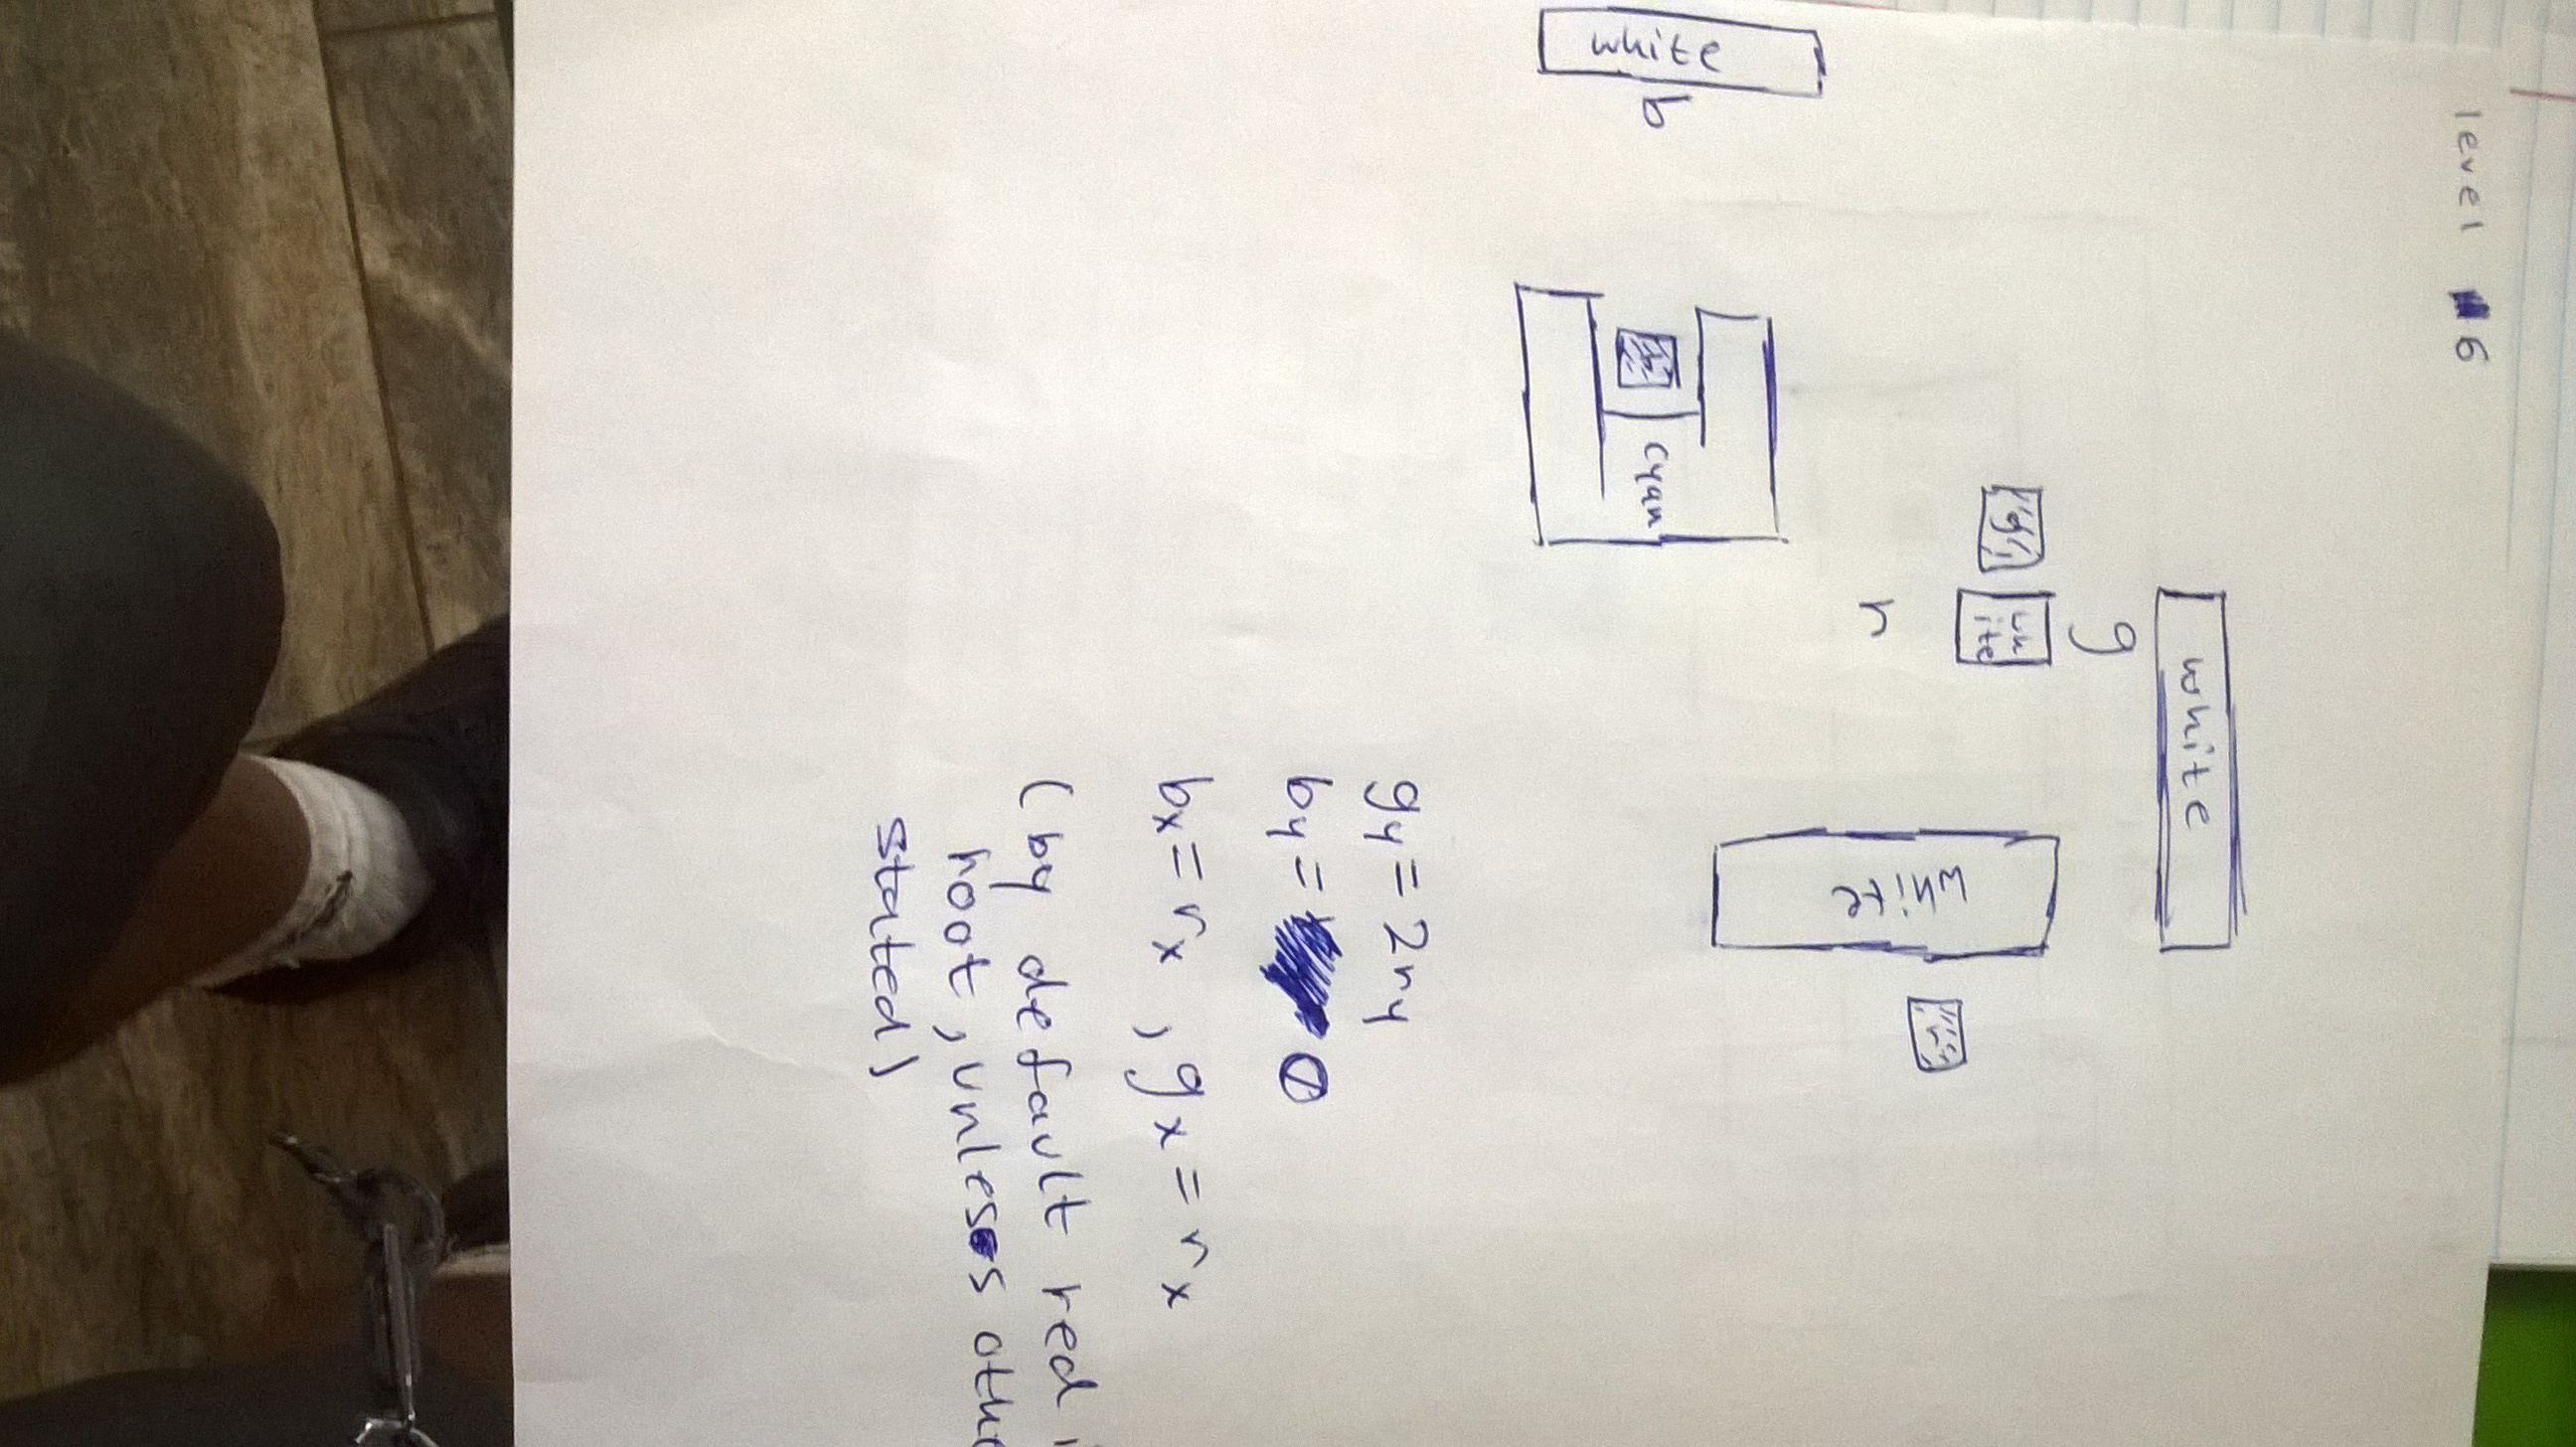 level 6
white
g
white
g
white
r
white
r
white
b
cyan
gy = 2ry
by = 0
bx = rx , gx = rx
(by default red
root, unless othe
stated)